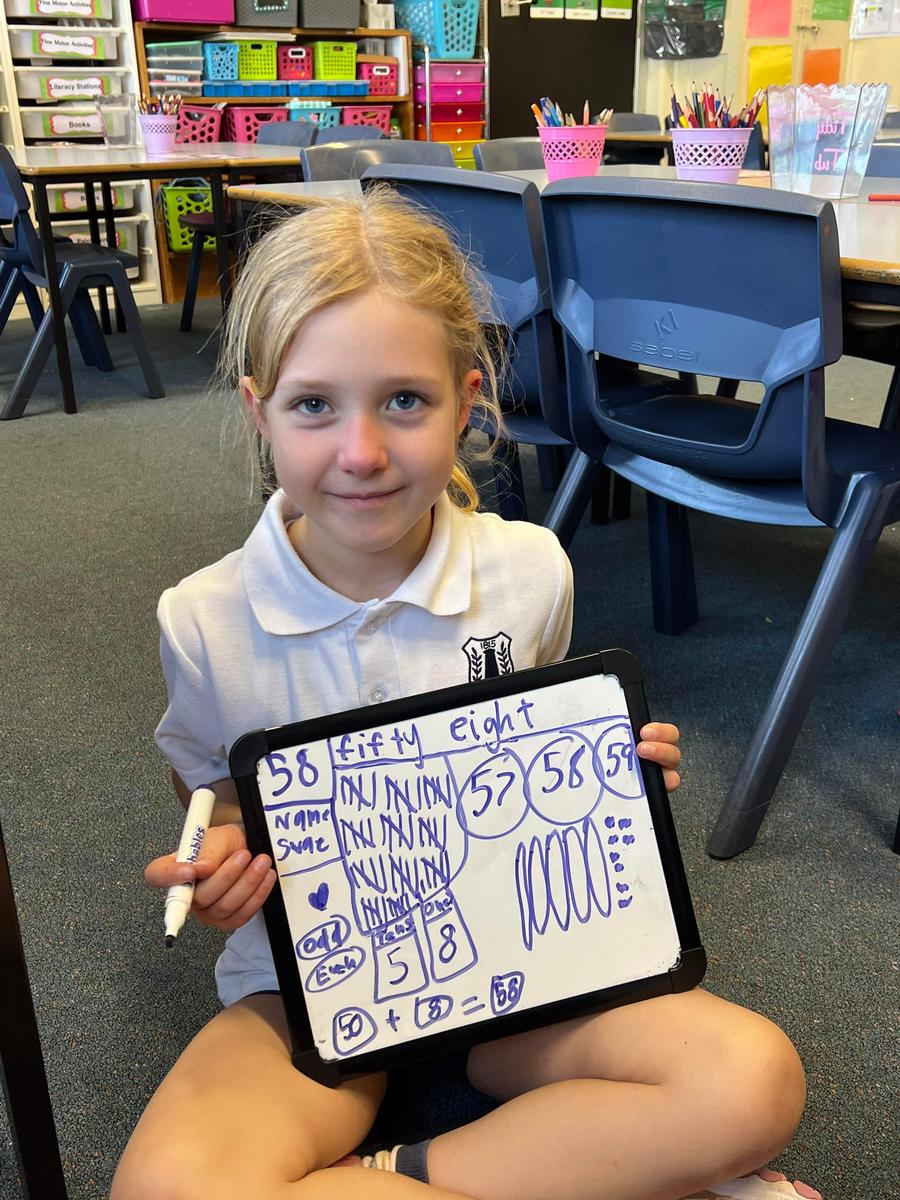 Fine Motor Activities
Fine Motor Activities
Literacy Stations
Books
KI
sebel
1815
58
fifty eight
57
58
59
Odd
Tens
One
5
8
50 + 8 = 58